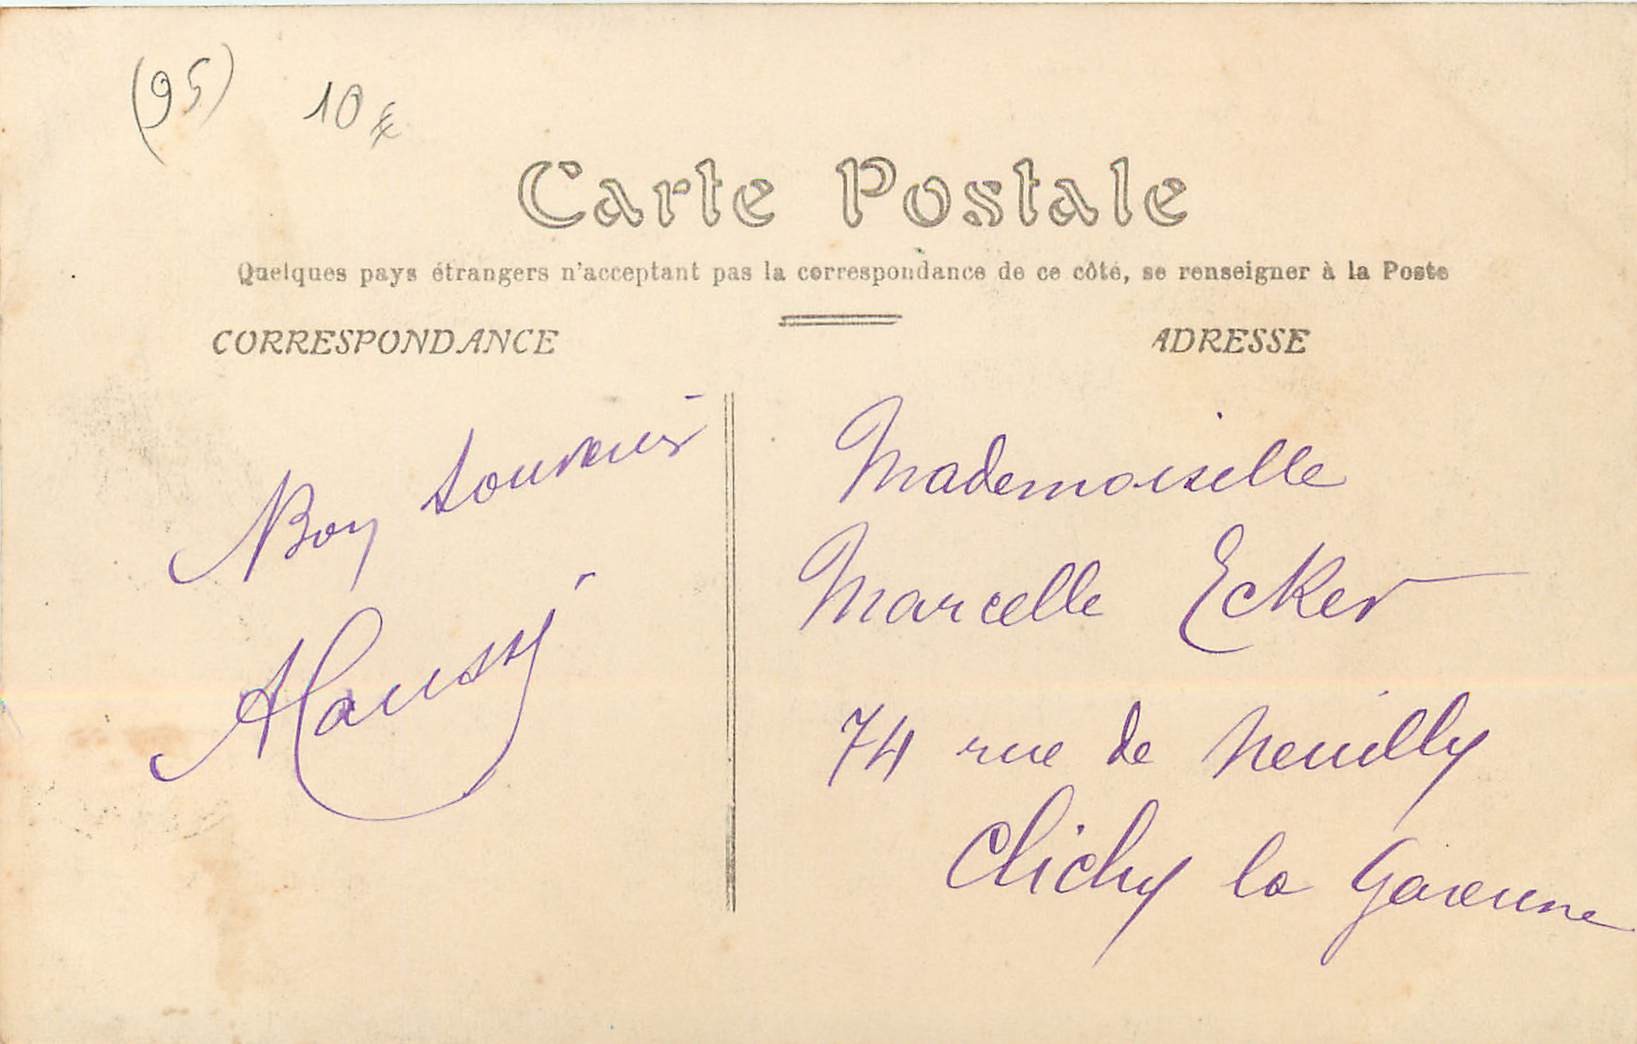 (95) 10 €
Carte Postale
Quelques pays étrangers n'acceptant pas la correspondance de ce côté, se renseigner à la Poste
CORRESPONDANCE
Bon souvenir
ADRESSE
Mademoiselle
Marcelle Ecker
74 rue de Neuilly
Clichy la Garenne